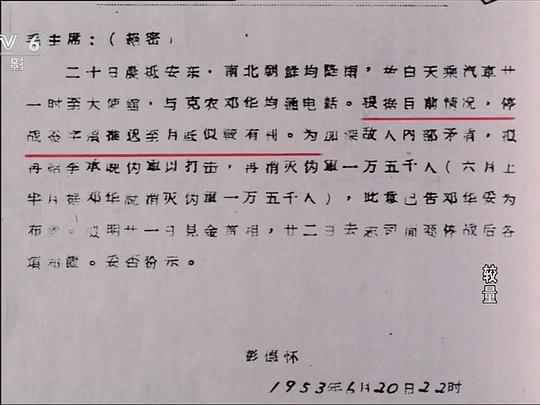 V 6
影
毛主席：（绝密）
二十日晨抵安东，南北朝鲜均降雨，故白天乘汽车廿
一时至大使馆，与克农邓华均通电话。根据目前情况，停
战签字须推迟至月底似较有利。为加深敌人内部矛盾，拟
再给李承晚伪军以打击，再消灭伪军一万五千人（六月上
半月据邓华说消灭伪军一万五千人），此意已告邓华妥为
布置。拟明廿一日见金首相，廿二日去志司面商停战后各
项布置。妥否盼示。
较量
彭德怀
1953年6月20日22时